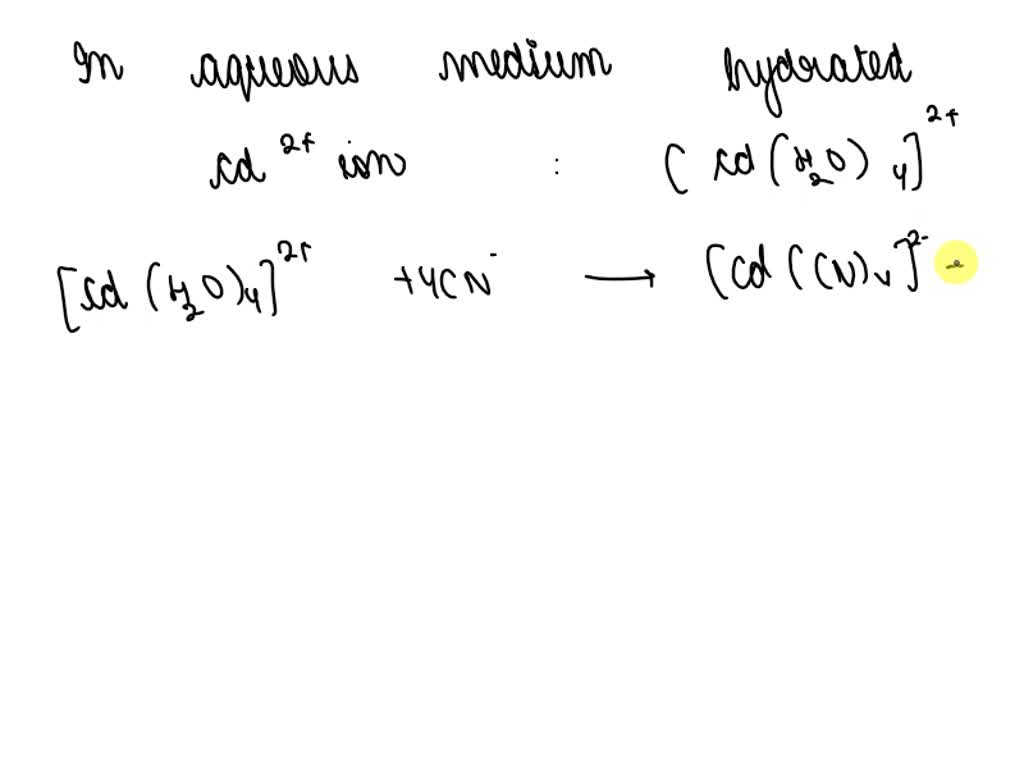 In aqueous medium hydrated
cd²⁺ ion : [cd(H₂O)₄]²⁺
[cd(H₂O)₄]²⁺ + 4CN⁻ ⟶ [Cd(CN)₄]²⁻